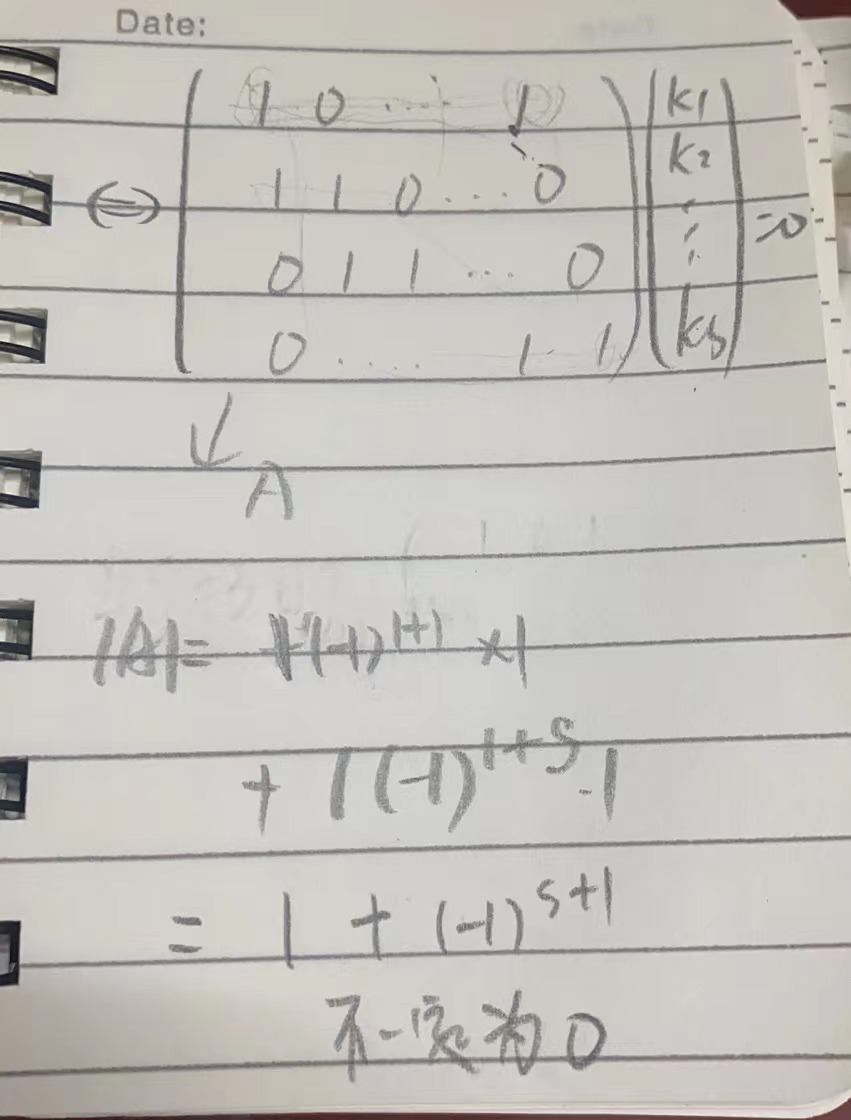 Date:
⇔ ( 1 0 ... 1 ) ( k1
1 1 0 ... 0 k2
0 1 1 ... 0 ⋮ ) =0
0 .... 1 1 ks
↓ A
|A|= 1·(-1)^{1+1} ×1
+ 1(-1)^{1+s}·1
= 1 + (-1)^{s+1}
不一定为0